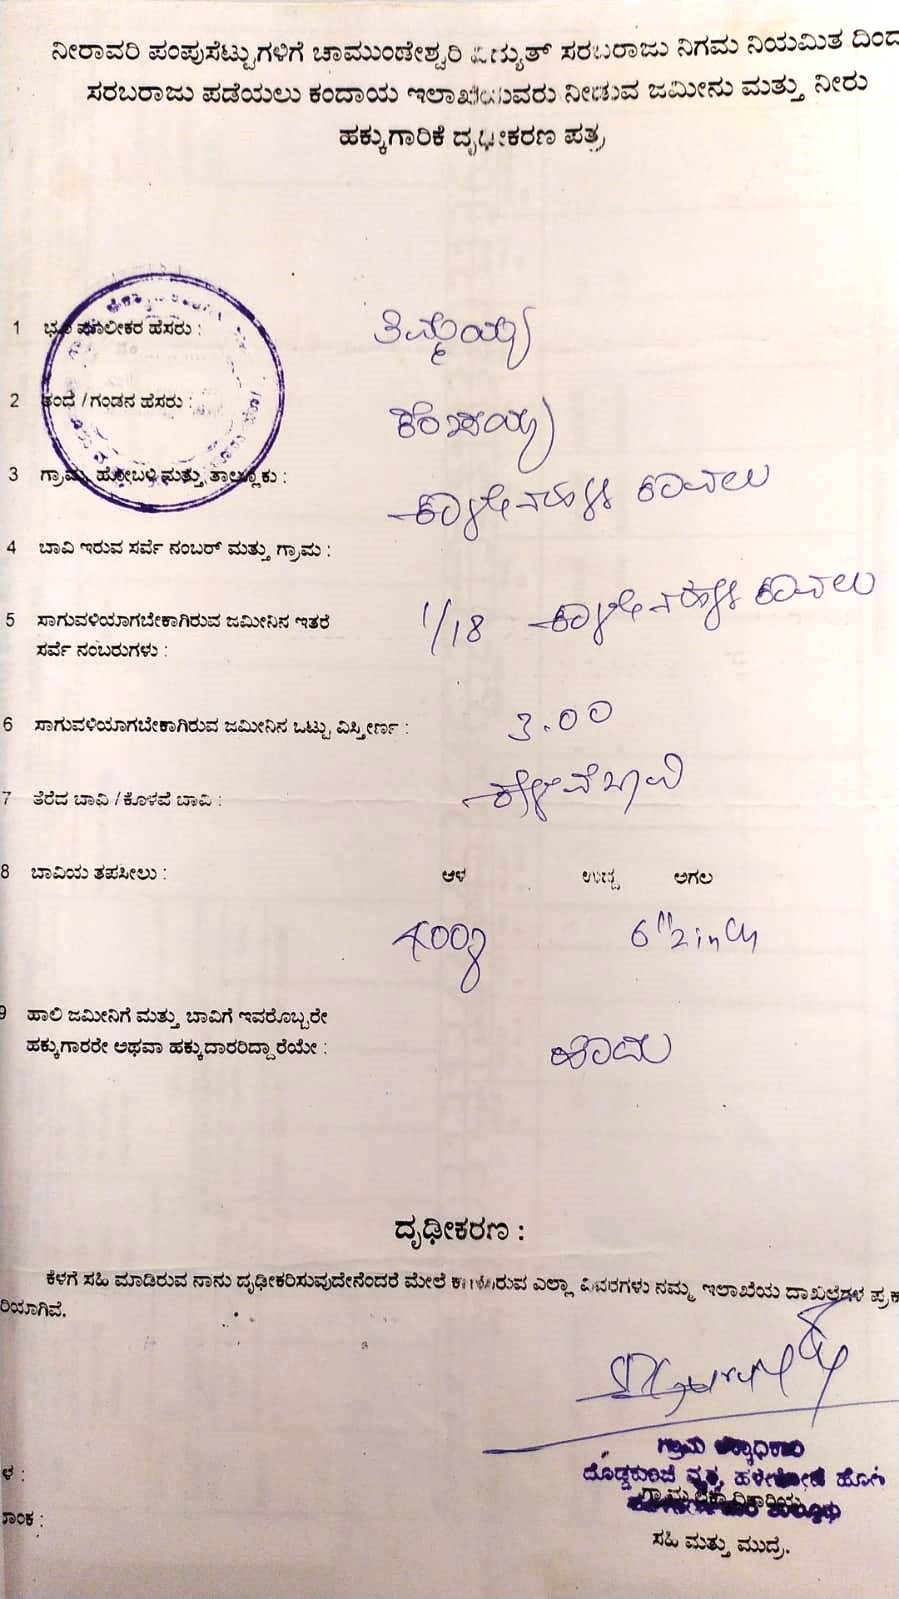 ನೀರಾವರಿ ಪಂಪುಸೆಟ್ಟುಗಳಿಗೆ ಚಾಮುಂಡೇಶ್ವರಿ ವಿದ್ಯುತ್ ಸರಬರಾಜು ನಿಗಮ ನಿಯಮಿತ ದಿಂದ
ಸರಬರಾಜು ಪಡೆಯಲು ಕಂದಾಯ ಇಲಾಖೆಯವರು ನೀಡುವ ಜಮೀನು ಮತ್ತು ನೀರು
ಹಕ್ಕುಗಾರಿಕೆ ದೃಢೀಕರಣ ಪತ್ರ
1 ಭೂ ಮಾಲೀಕರ ಹೆಸರು : ತಿಮ್ಮಯ್ಯ
2 ತಂದೆ / ಗಂಡನ ಹೆಸರು :
3 ಗ್ರಾಮ, ಹೋಬಳಿ ಮತ್ತು ತಾಲ್ಲೂಕು : ಕಾಳೇನಹಳ್ಳಿ ಕಾವಲು
4 ಬಾವಿ ಇರುವ ಸರ್ವೆ ನಂಬರ್ ಮತ್ತು ಗ್ರಾಮ :
5 ಸಾಗುವಳಿಯಾಗಬೇಕಾಗಿರುವ ಜಮೀನಿನ ಇತರೆ 1/18 ಕಾಳೇನಹಳ್ಳಿ ಕಾವಲು
ಸರ್ವೆ ನಂಬರುಗಳು :
6 ಸಾಗುವಳಿಯಾಗಬೇಕಾಗಿರುವ ಜಮೀನಿನ ಒಟ್ಟು ವಿಸ್ತೀರ್ಣ : 3.00
7 ತೆರೆದ ಬಾವಿ / ಕೊಳವೆ ಬಾವಿ : ಕೊಳವೆ ಬಾವಿ
8 ಬಾವಿಯ ತಪಸೀಲು : ಆಳ ಉದ್ದ ಅಗಲ
6"2 inch
9 ಹಾಲಿ ಜಮೀನಿಗೆ ಮತ್ತು ಬಾವಿಗೆ ಇವರೊಬ್ಬರೇ
ಹಕ್ಕುಗಾರರೇ ಅಥವಾ ಹಕ್ಕುದಾರರಿದ್ದಾರೆಯೇ : ಹೌದು
ದೃಢೀಕರಣ :
ಕೆಳಗೆ ಸಹಿ ಮಾಡಿರುವ ನಾನು ದೃಢೀಕರಿಸುವುದೇನೆಂದರೆ ಮೇಲೆ ಕಾಣಿಸಿರುವ ಎಲ್ಲಾ ವಿವರಗಳು ನಮ್ಮ ಇಲಾಖೆಯ ದಾಖಲೆಗಳ ಪ್ರಕ
ರಿಯಾಗಿವೆ.
ಗ್ರಾಮ ಲೆಕ್ಕಾಧಿಕಾರಿ
ಳ :
ಗ್ರಾಮ ಲೆಕ್ಕಾಧಿಕಾರಿಯ
ರಾಂಕ :
ಸಹಿ ಮತ್ತು ಮುದ್ರೆ.